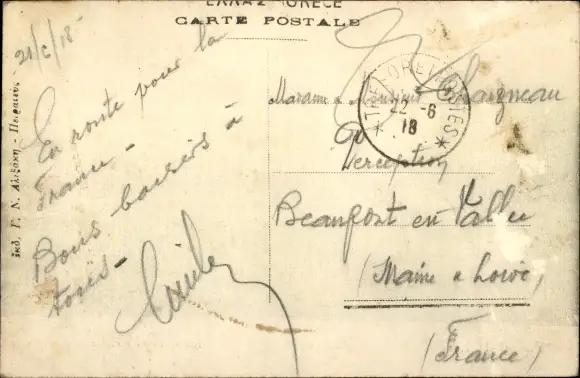 ΕΛΛΑΣ GRÈCE
CARTE POSTALE
21/6/18
En route pour la
France -
Bons baisers à
tous -
Madame & Monsieur Chaigneau
Perception
Beaufort en Vallée
(Maine & Loire)
(France)
TRESOR ET POSTES
22 - 6
18
ἐκδ. Γ. Ν. Ἀλεξάκη - Πειραιεύς